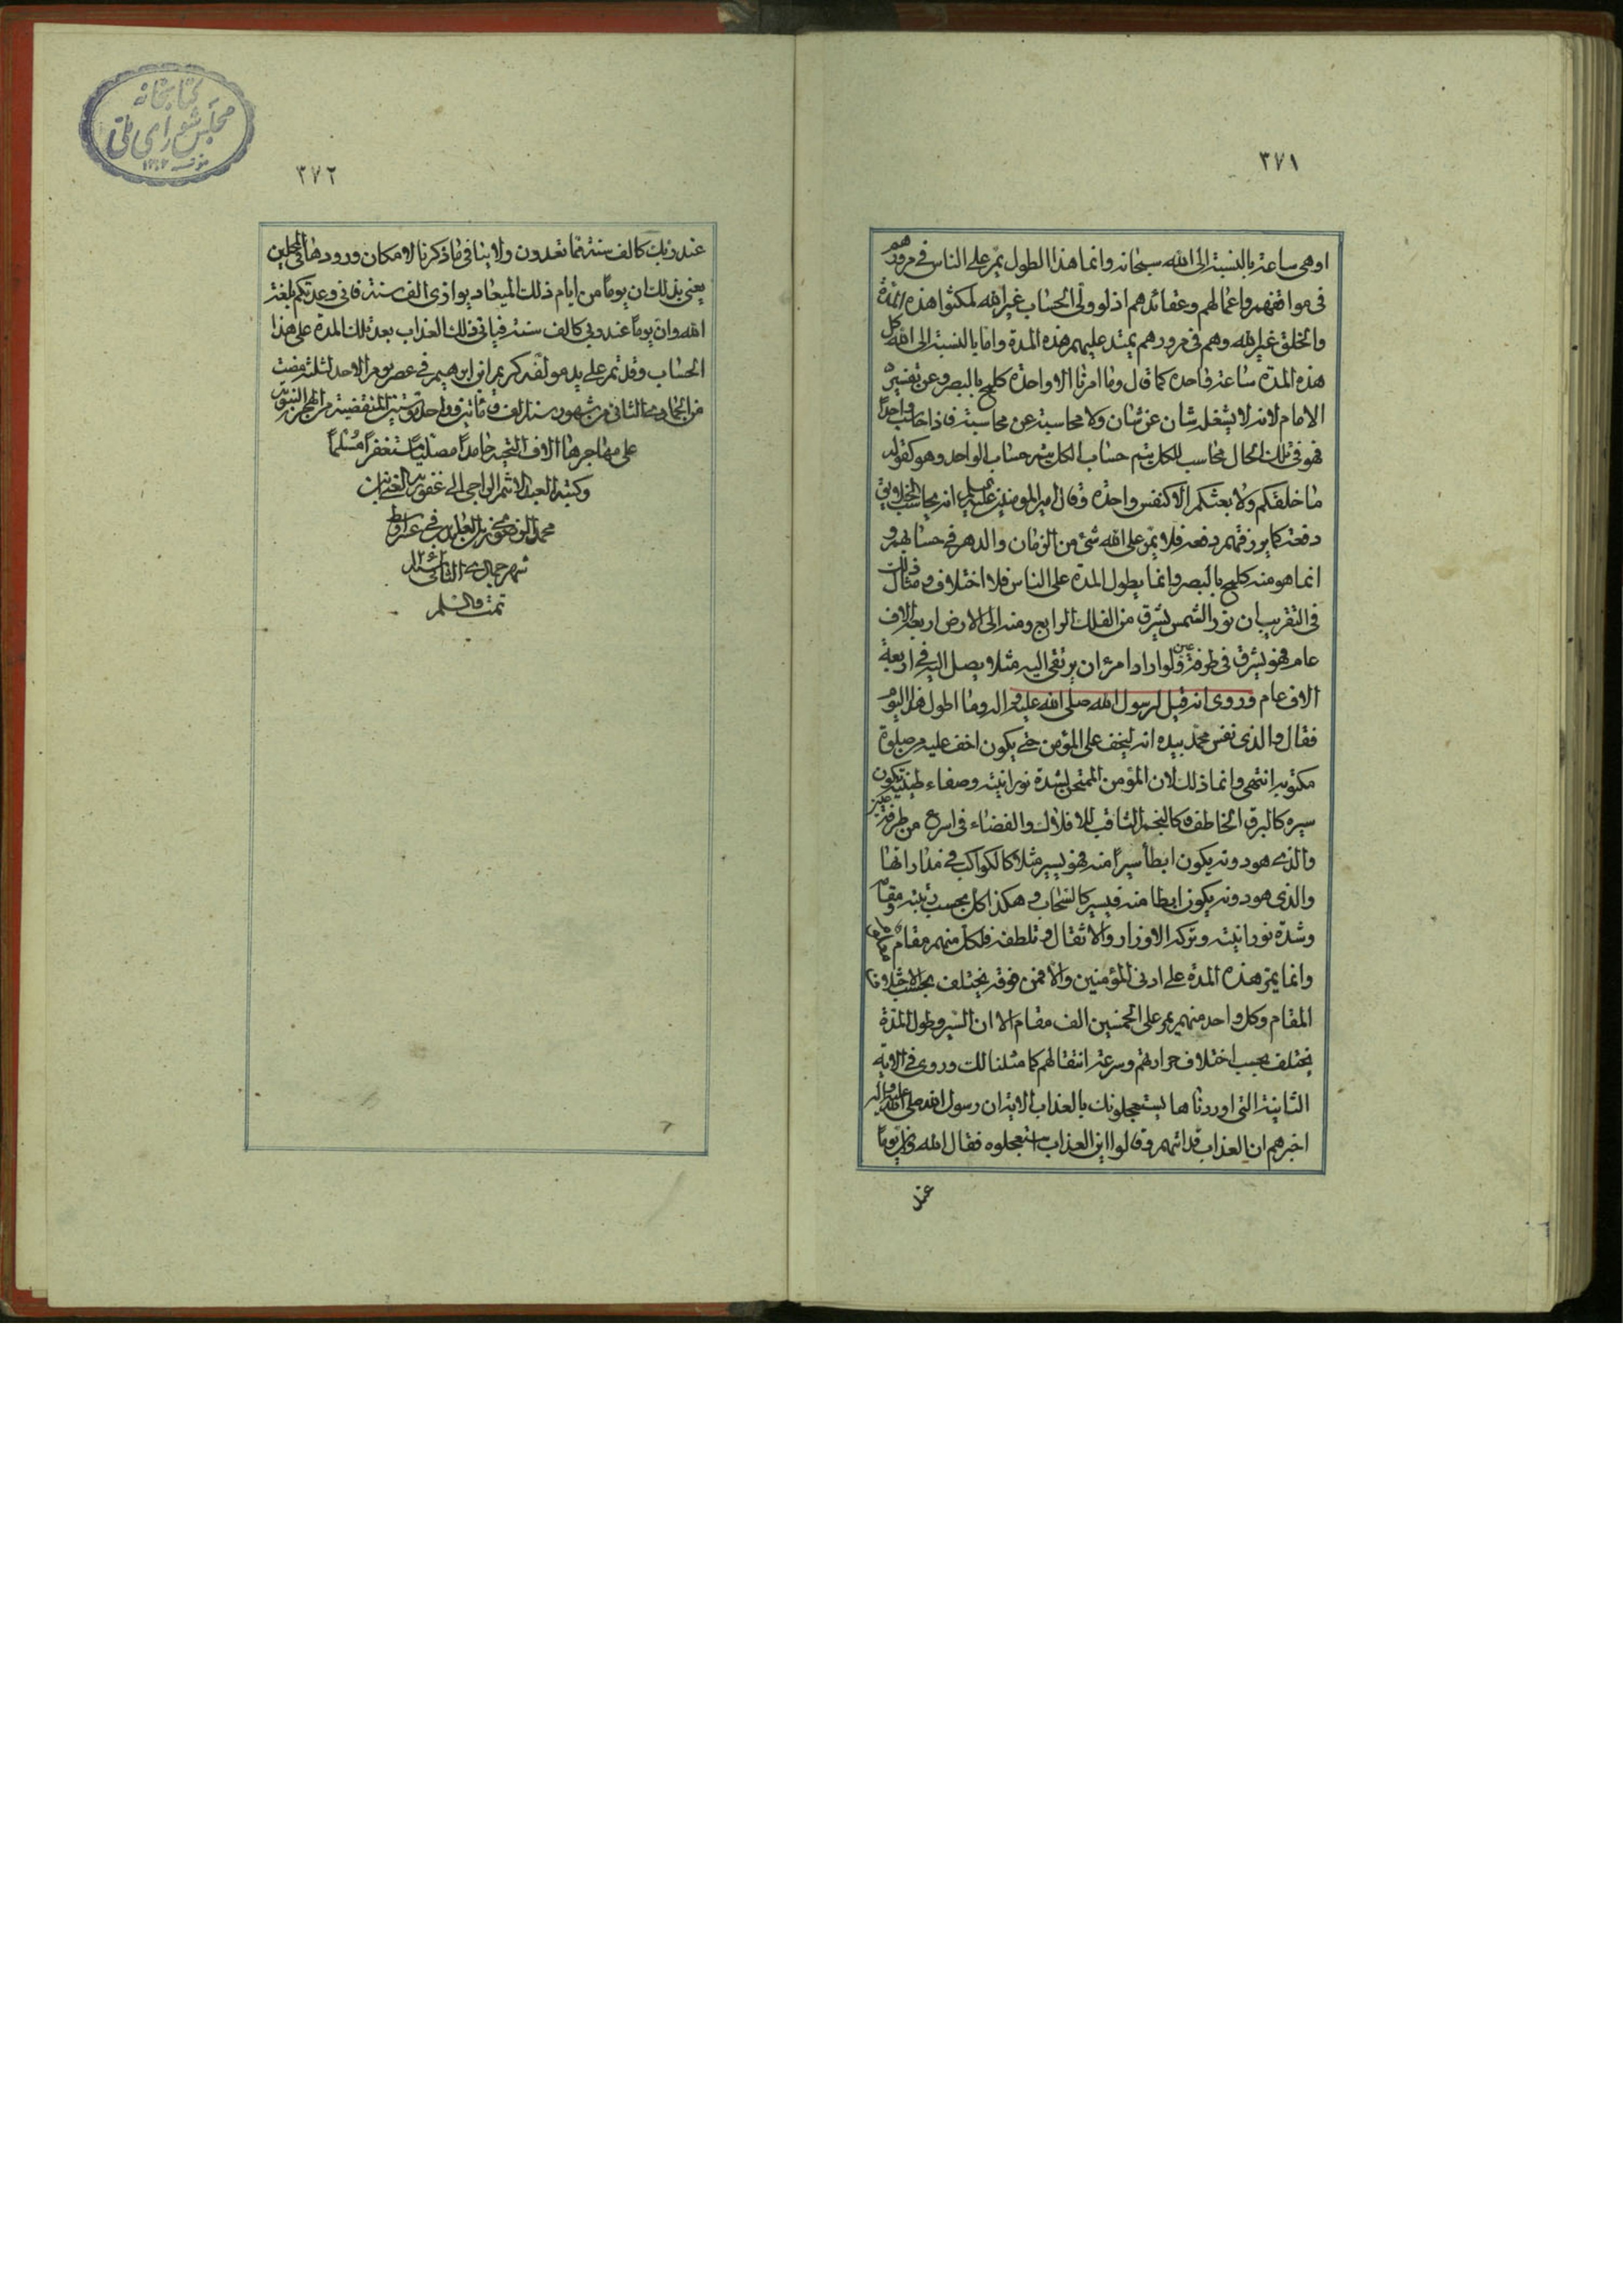 ٣٧١
او هی ساعة بالنسبة الی الله سبحانه وانما هذا الطول یمر علی الناس فی مرورهم
فی مواقفهم واعمالهم وعقائدهم اذ لو ولی الحساب غیر الله لمکثوا هذه المدة
والخلق غیر الله وهم فی مرورهم یمتد علیهم هذه المدة واما بالنسبة الی الله کل
هذه المدة ساعة واحدة کما قال وما امرنا الا واحدة کلمح بالبصر وعن تفسیر
الامام لانه لا یشغله شان عن شان ولا محاسبة عن محاسبة فاذا حاسب واحدا
فهو فی تلک الحال محاسب للکل یتم حساب الکل بتم حساب الواحد وهو کقوله
ما خلقکم ولا بعثکم الا کنفس واحدة وقال امیر المومنین علیه السلم انه یحاسب الخلایق
دفعة کما یرزقهم دفعة فلا یمر علی الله شئ من الزمان والدهر فی حسابهم و
انما هو منه کلمح بالبصر وانما یطول المدة علی الناس فلا اختلاف ومثال ذلک
فی التقریب ان نور الشمس یشرق من الفلک الرابع ومنه الی الارض اربعة الاف
عام فهو یشرق فی طرفة عین ولو اراد امرء ان یرتقی الیه مثلا یصل الیه فی اربعة
الاف عام وروی انه قیل لرسول الله صلی الله علیه واله وما اطول هذا الیوم
فقال والذی نفس محمد بیده انه لیخف علی المؤمن حتی یکون اخف علیه من صلوة
مکتوبة انتهی وانما ذلک لان المؤمن الممتحن لشدة نورانیته وصفاء طینته یکون
سیره کالبرق الخاطف وکالنجم الثاقب للافلاک والفضاء فی اسرع من طرفة عین
والذی هو دونه یکون ابطأ سیراً منه فهو یسیر مثلا کالکواکب فی مداراتها
والذی هو دونه یکون ابطا منه فیسیر کالسحاب وهکذا کل بحسب رتبته ومقامه
وشدة نورانیته وترکه الاوزار والاثقال وتلطفه فلکل منهم مقام
وانما یمر هذه المدة علی ادنی المؤمنین والا فمن فوقه یختلف بحسب اختلاف
المقام وکل واحد منهم یمر علی الخمسین الف مقام الا ان السیر وطول المدة
یختلف بحسب اختلاف حرارتهم وسرعة انتقالهم کما مثلنا لک وروی فی الایة
الثانیة التی اوردناها یستعجلونک بالعذاب الایة ان رسول الله صلی الله علیه واله
اخبرهم ان العذاب قد اتیهم وقالوا این العذاب استعجلوه فقال الله وان یوما
عند
٣٧٢
عند ربک کالف سنة مما تعدون ولا ینافی ما ذکرنا لامکان ورودها فی المحلین
یعنی بذلک ان یوماً من ایام ذلک المیعاد یوازی الف سنة فانی وعدتکم بلغة
الله وان یوماً عند ربی کالف سنة فیاتی ذلک العذاب بعد تلک المدة علی هذا
الحساب وقد تم علی ید مولفه کریم ابن ابرهیم فی عصر یوم الاحد لثلث مضت
من الجمادی الثانی من شهور سنة الف ومأتین وواحد وستین المنقضیة من الهجرة النبویة
علی مهاجرها الاف التحیة حامداً مصلیاً مستغفراً مسلماً
وکتبه العبد الاثم الراجی الی غفو ربه الغنی ابن
شهر جمادی الثانی
تمت والسلم
کتابخانه
مجلس شورای ملی